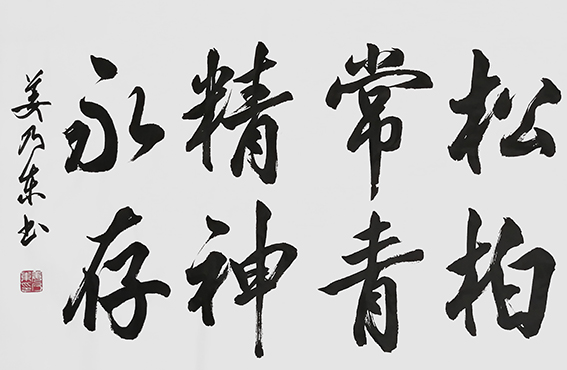 松柏
常青
精神
永存
姜乃东书